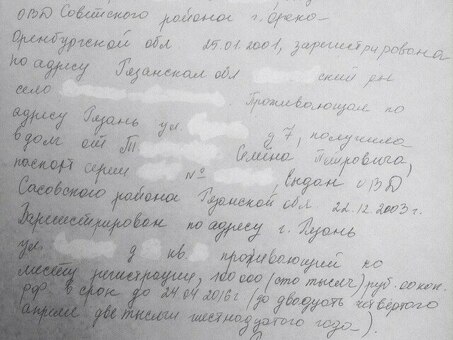 ОВД Советского района г. Орска
Оренбургской обл. 25.01.2001, зарегистрирована
по адресу Рязанская обл ский р-н
село . Проживающая по
адресу Рязань ул. д 7, получила
в долг от Т Семёна Петровича,
паспорт серии № , выдан ОВД
Сасовского района Рязанской обл. 22.12.2003 г.
Зарегистрирован по адресу г. Рязань
ул. д кв. проживающий по
месту регистрации, 100 000 (сто тысяч) руб. 00 коп.
РФ. в срок до 24.04.2016 г (до двадцать четвертого
апреля две тысячи шестнадцатого года).